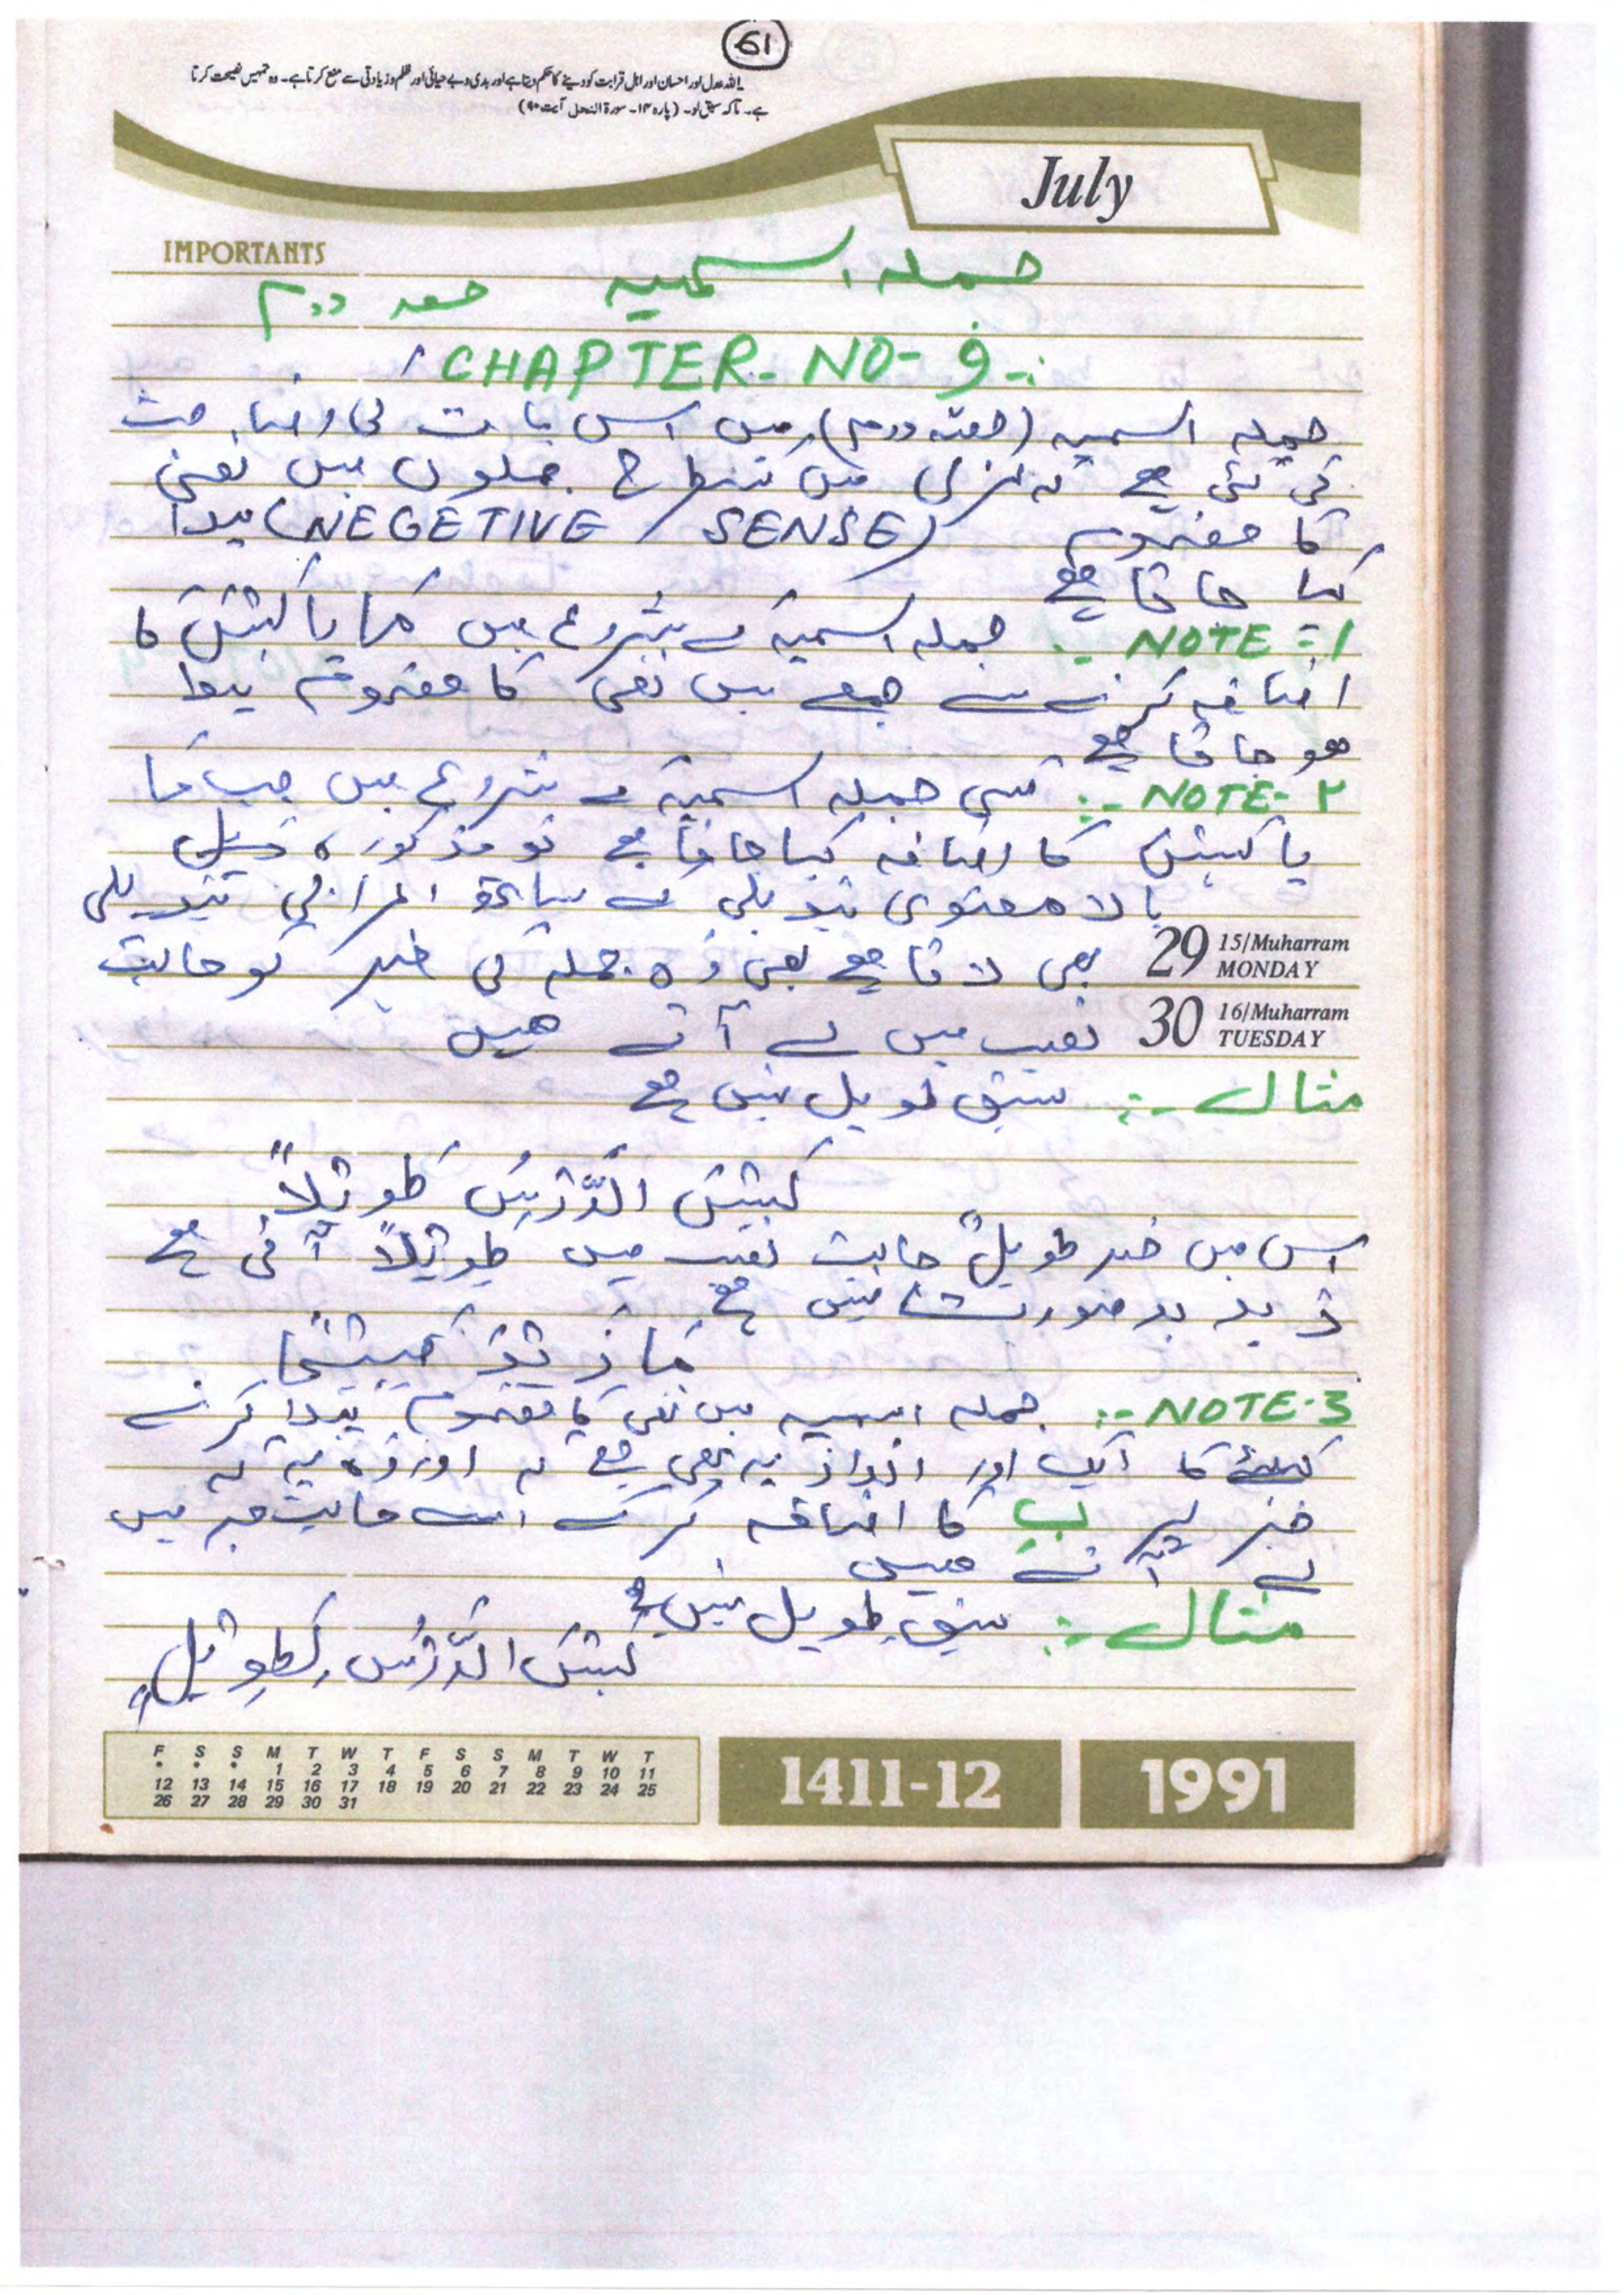 61
اللہ عدل اور احسان اور اہل قرابت کو دینے کا حکم دیتا ہے اور بدی و بے حیائی اور ظلم و زیادتی سے منع کرتا ہے۔ وہ تمہیں نصیحت کرتا
ہے۔ تاکہ سبق لو۔ (پارہ ۱۴۔ سورۃ النحل آیت ۹۰)
July
IMPORTANTS
جملہ اسمیہ حصہ دوم
CHAPTER-NO-9:-
جملہ اسمیہ (حصہ دوم) میں اس بات کی وضاحت
کی گئی ہے کہ عربی میں کس طرح جملوں میں نفی
کا مفہوم (NEGETIVE SENSE) پیدا
کیا جاتا ہے
NOTE-1 :- جملہ اسمیہ کے شروع میں مَا یا لَیْسَ کا
اضافہ کرنے سے جملے میں نفی کا مفہوم پیدا
ھو جاتا ہے
NOTE-۲ :- کسی جملہ اسمیہ کے شروع میں جب مَا
یا لیسَ کا اضافہ کیا جاتا ہے تو مذکورہ
بالا معنوی تبدیلی کے ساتھ اعرابی تبدیلی
29 15/Muharram MONDAY بھی لاتا ہے یعنی وہ جملہ کی خبر کو حالت
30 16/Muharram TUESDAY نصب میں لے آتے ھیں
مثال :- سبق طویل نہیں ہے
لَیْسَ الدَّرْسُ طَوِیْلاً
اس میں خبر طویلٌ حالت نصب میں طَوِیْلاً آئی ہے
زید بدصورت نہیں ہے
مَا زَیْدٌ قَبِیْحًا
NOTE-3 :- جملہ اسمیہ میں نفی کا مفہوم پیدا کرنے
کیلئے کا ایک اور انداز یہ بھی ہے کہ اور وہ یہ کہ
خبر پر بِ کا اضافہ کرکے اسے حالت جر میں
لے آتے ہیں
مثال :- سبق طویل نہیں ہے
لَیْسَ الدَّرْسُ بِطَوِیْلٍ
F S S M T W T F S S M T W T
* * * 1 2 3 4 5 6 7 8 9 10 11
12 13 14 15 16 17 18 19 20 21 22 23 24 25
26 27 28 29 30 31
1411-12
1991